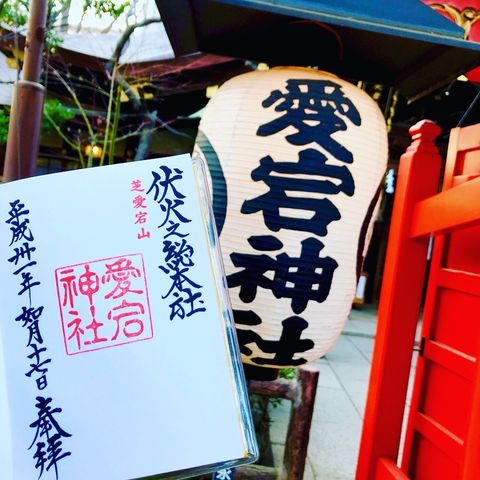 伏火之総本社
芝愛宕山
愛宕
神社
平成卅一年 如月十七日 奉拝
愛宕神社